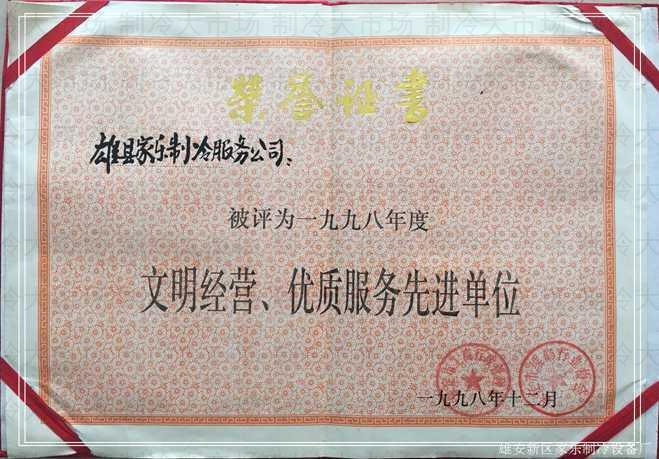 制冷大市场 制冷大市场 制冷大市场
荣誉证书
雄县家乐制冷服务公司:
被评为一九九八年度
文明经营、优质服务先进单位
一九九八年十二月
雄安新区家乐制冷设备厂